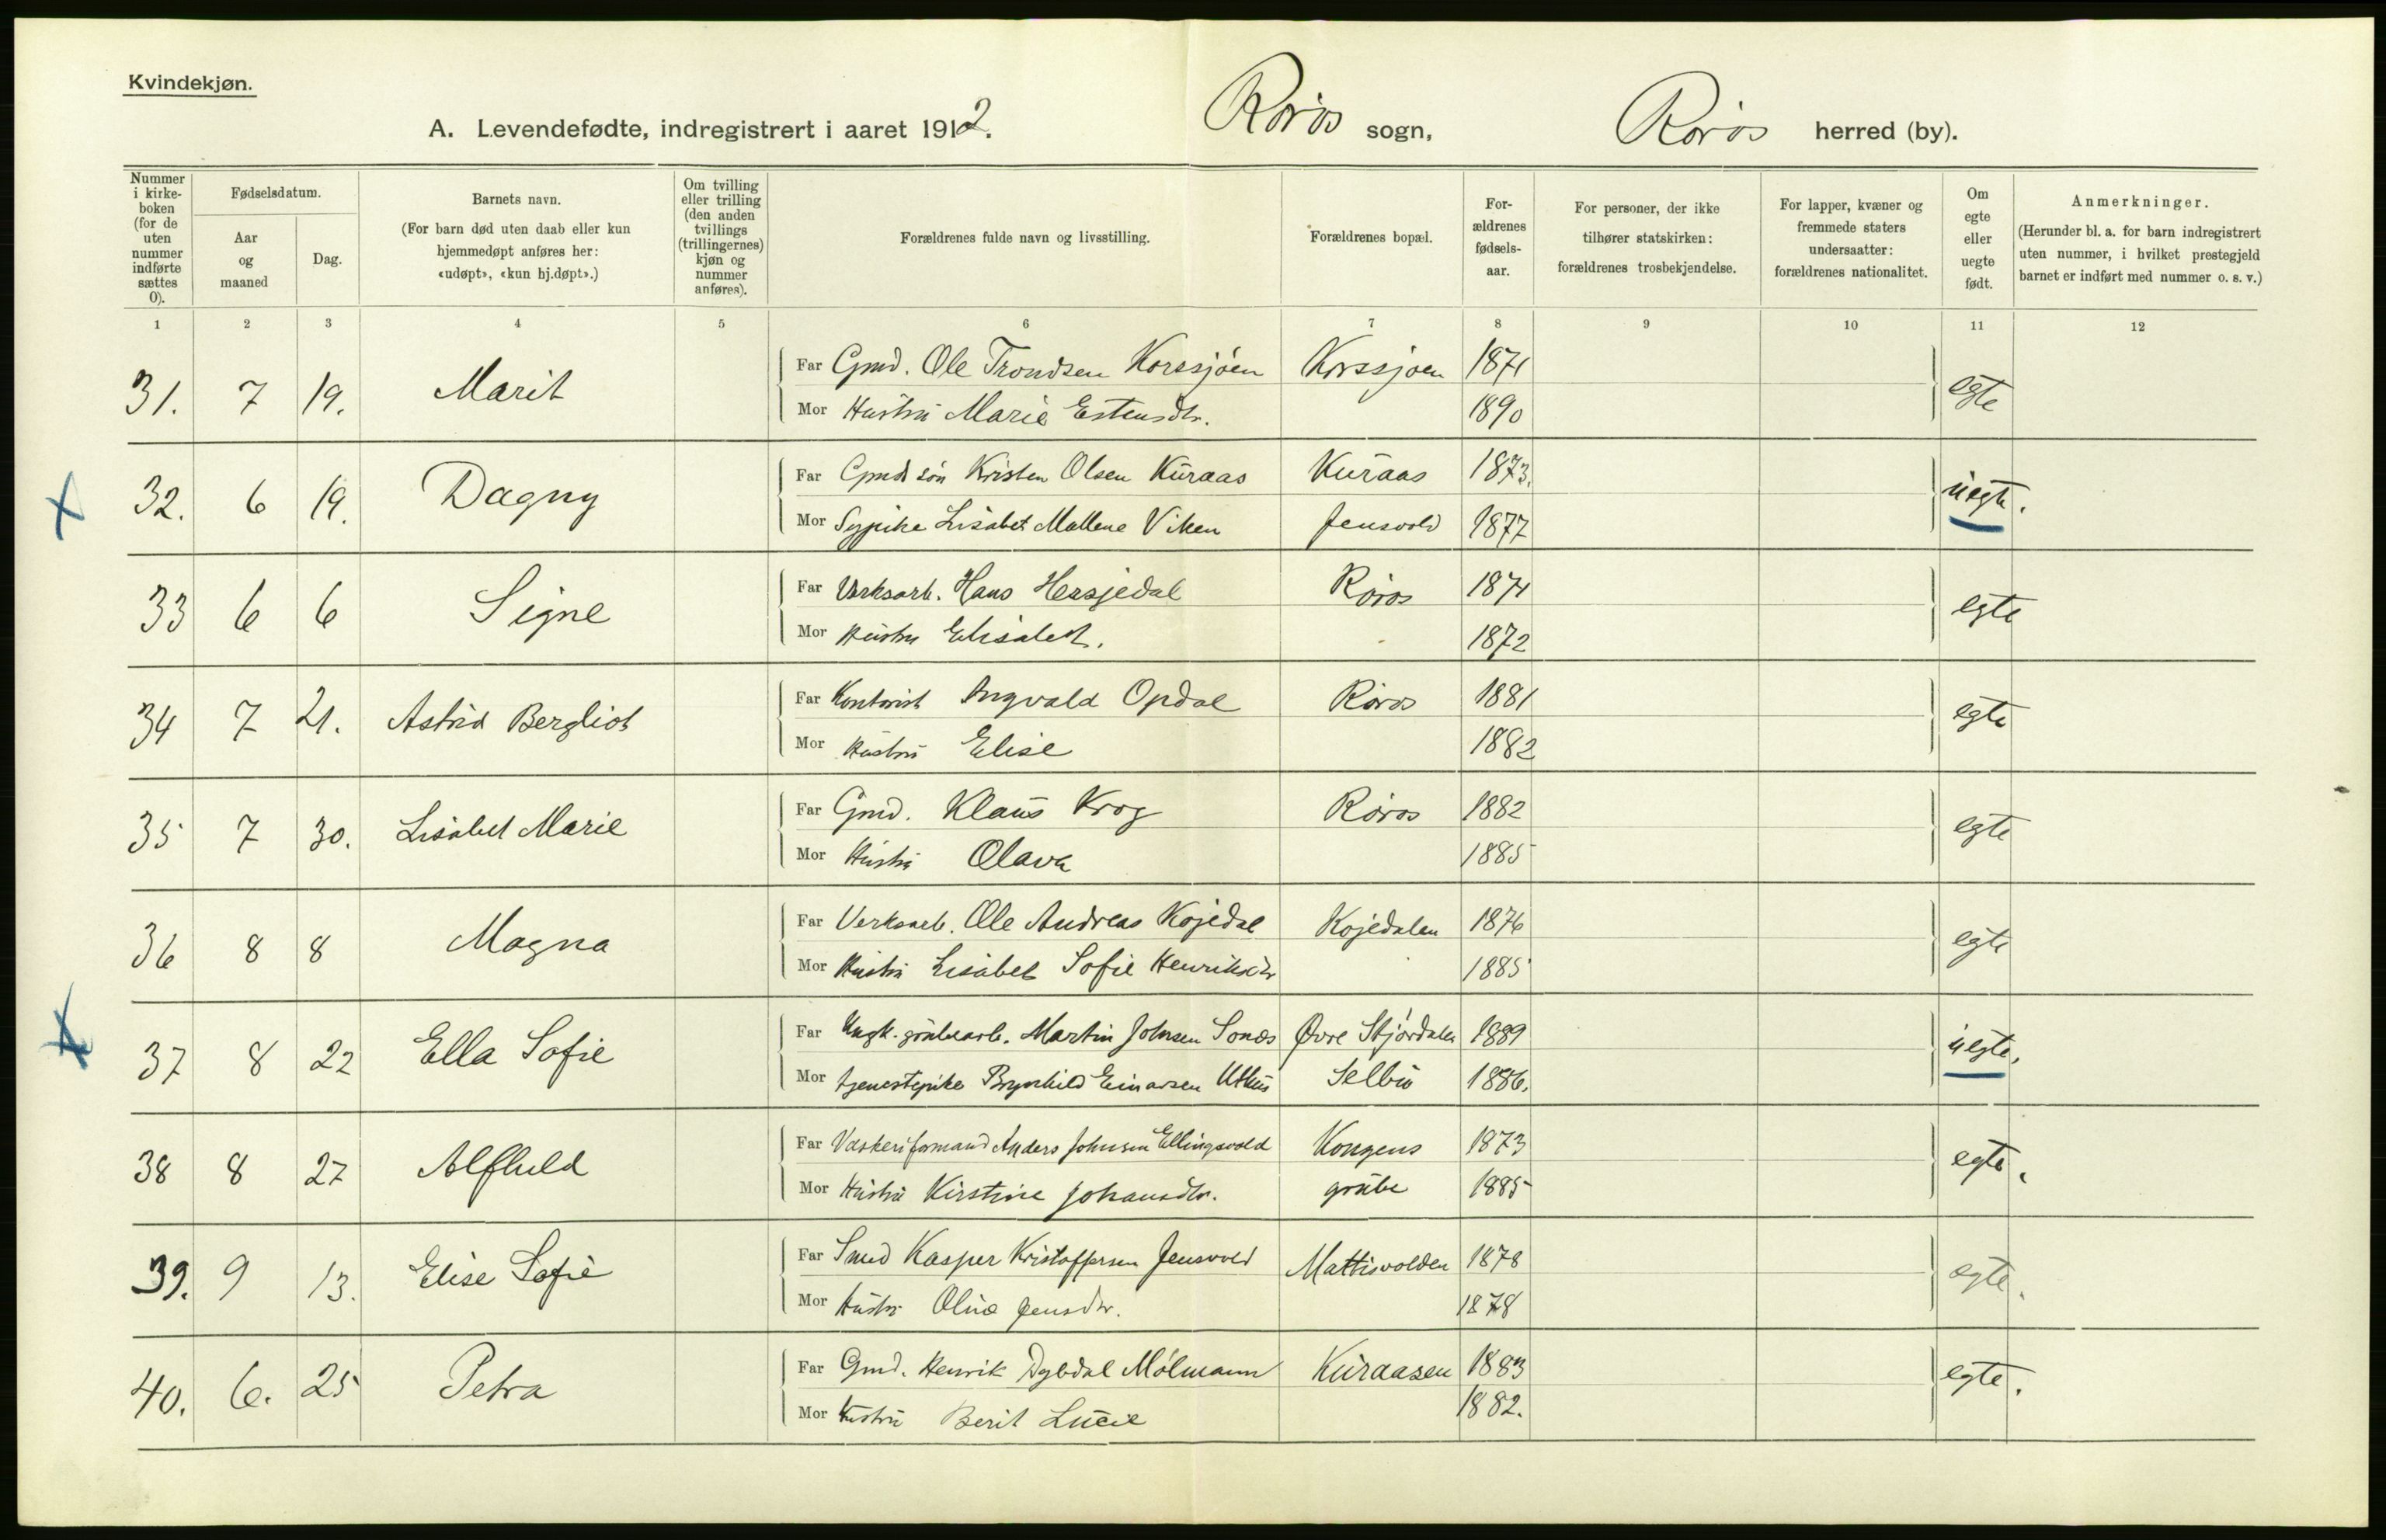 Kvindekjøn.
A. Levendefødte, indregistrert i aaret 1912. Røros sogn, Røros herred (by).
Nummer i kirkeboken (for de uten nummer indførte sættes 0).
Fødselsdatum.
Aar og maaned
Dag.
Barnets navn.
(For barn død uten daab eller kun hjemmedøpt anføres her: «udøpt», «kun hj.døpt».)
Om tvilling eller trilling (den anden tvillings (trillingernes) kjøn og nummer anføres).
Forældrenes fulde navn og livsstilling.
Forældrenes bopæl.
Forældrenes fødselsaar.
For personer, der ikke tilhører statskirken: forældrenes trosbekjendelse.
For lapper, kvæner og fremmede staters undersaatter: forældrenes nationalitet.
Om egte eller uegte født.
Anmerkninger.
(Herunder bl. a. for barn indregistrert uten nummer, i hvilket prestegjeld barnet er indført med nummer o. s. v.)
1 2 3 4 5 6 7 8 9 10 11 12
31. 7 19. Marit Far Gmd. Ole Trondsen Korssjøen Korssjøen 1871 egte
Mor Hustru Marie Estensdtr. 1890
32. 6 19. Dagny Far Gmds søn Kristen Olsen Kuraas Kuraas 1873. uegte.
Mor Sypike Lisabet Mallene Viken Jensvold 1877
33 6 6 Signe Far Verksarb. Hans Hersjedal Røros 1871 egte
Mor Hustru Elisabet. 1872
34 7 21. Astrid Bergliot Far Kontorist Ingvald Opdal Røros 1881 egte
Mor Hustru Elise 1882
35 7 30. Lisabet Marie Far Gmd. Klaus Krog Røros 1882 egte
Mor Hustru Olava 1885
36 8 8 Magna Far Verksarb. Ole Andreas Kojedal Kojedalen 1876 egte
Mor Hustru Lisabet Sofie Henriksdtr 1885
37 8 22 Ella Sofie Far Ungk. grubearb. Martin Johnsen Sonæs Øvre Stjørdalen 1889 uegte.
Mor tjenestepike Brynhild Einarsen Uthus Selbu 1886.
38 8 27 Alfhild Far Vaskeriformand Anders Johnsen Ellingsvold Kongens 1873 egte.
Mor Hustru Kirstine Johansdtr. grube 1885
39. 9 13. Elise Sofie Far Smed Kasper Kristoffersen Jensvold Mattisvolden 1878 egte.
Mor Hustr Oline Jensdtr. 1878
40. 6. 25 Petra Far Gmd. Henrik Dybdal Mølmann Kuraasen 1883 egte.
Mor Hustru Berit Lucie 1882.